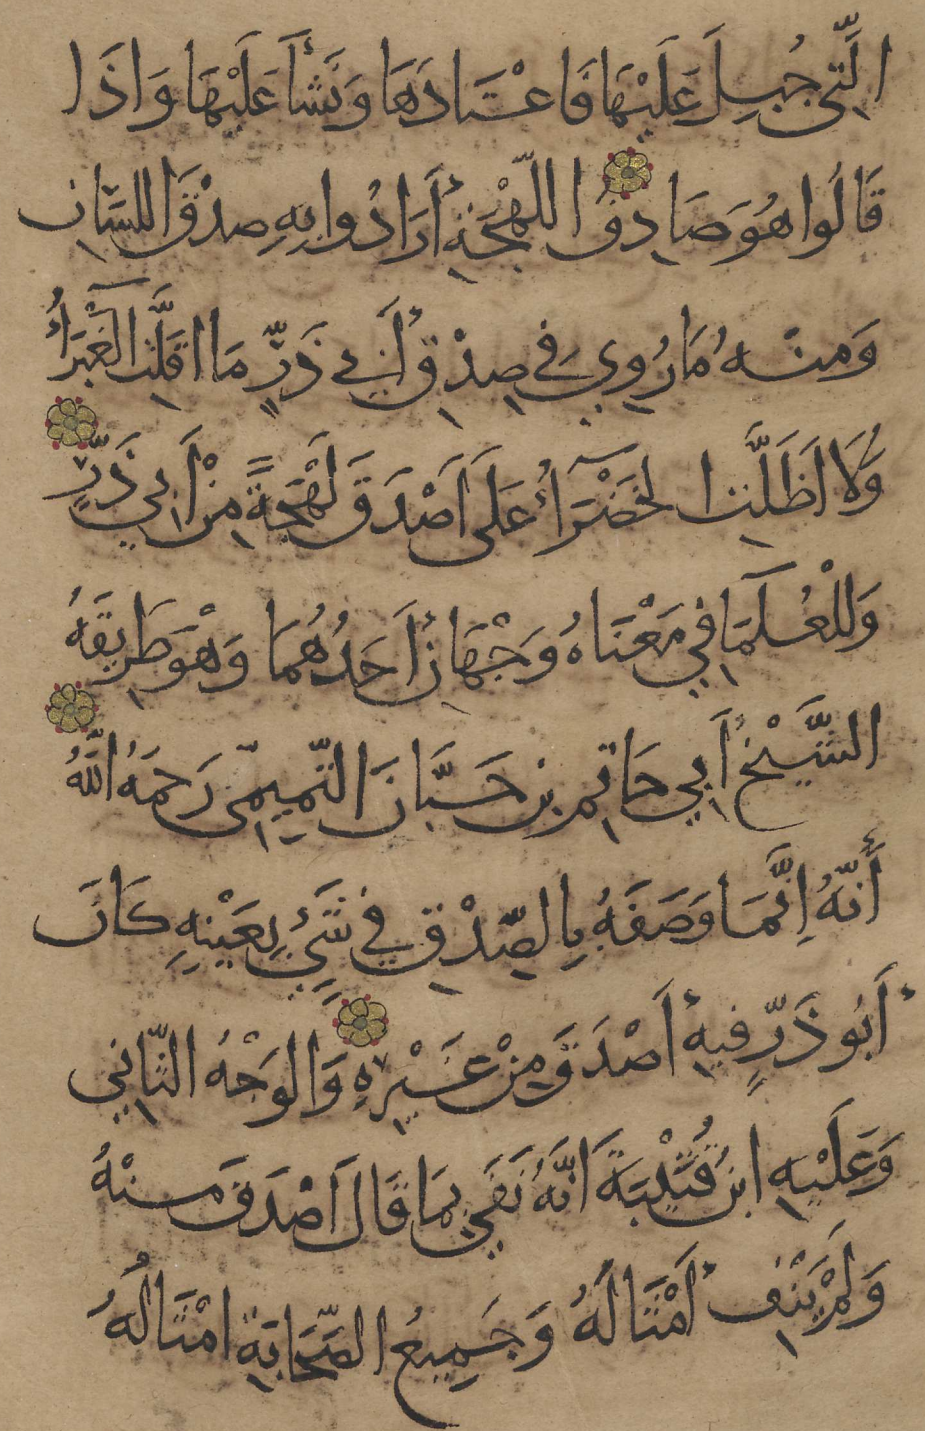 الَّتِي جُبِلَ عَلَيْهَا فَاعْتَادَهَا وَنَشَأَ عَلَيْهَا وَاذَا
قَالُوا هُوَ صَادِقُ اللَّهْجَةِ أَرَادُوا بِهِ صِدْقَ اللسَان
وَمنه مَا رُوِي فِي صِدْقِ أَبِي ذَرٍّ مَا اقَلَّتِ الْغَبْرَآءُ
وَلَا اَظَلَّتِ الخَضْرَآءُ عَلَى اَصْدَقَ لَهْجَةً مِنْ أَبِي ذَرٍّ
وَلِلْعُلَمَآ فِي مَعْنَاهُ وَجْهَانِ أَحَدُهُمَا وَهْوَ طَرِيقَةُ
الشَّيْخِ أَبِي حَاتِمِ بنِ حَبَّانَ التَّمِيمِيّ رَحِمَهُ اللَّهُ
أَنَّهُ اِنَّمَا وَصَفَهُ بِالصِّدْقِ فِي شَيْءٍ بِعَيْنِهِ كَانَ
أَبُو ذَرٍّ فِيهِ أَصْدَقَ مِنْ غَيْرِهِ وَالوَجْهُ الثَّانِي
وَعَلَيْهِ ابنُ قُتَيْبَةَ اَنَّهُ نَفَى بِمَا قَالَ اَصْدَقَ منهُ
وَلَمْ يَنْفِ أَمْثَالَهُ وَجَمِيعُ الصَّحَابَةِ امْثَالُهُ